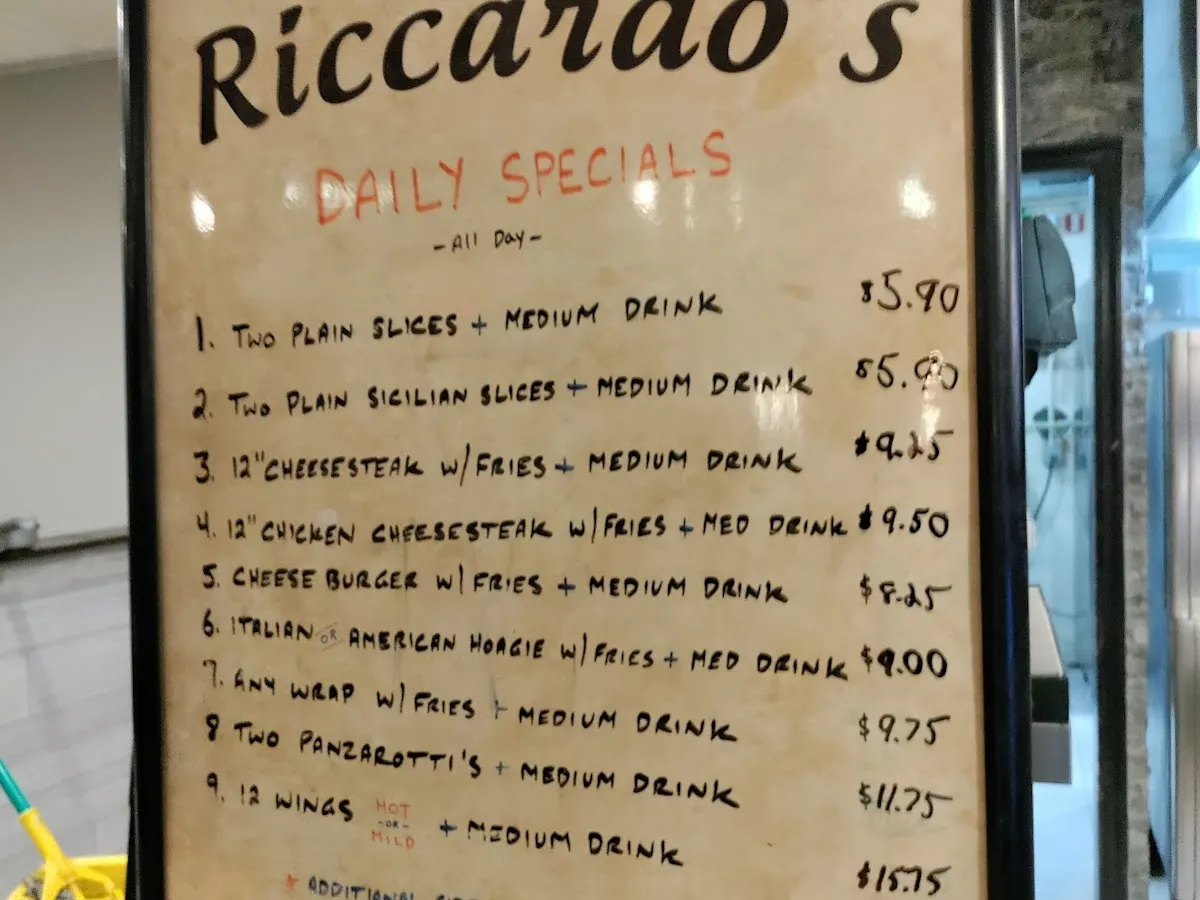 Riccardo's
DAILY SPECIALS
- All Day -
1. TWO PLAIN SLICES + MEDIUM DRINK $5.90
2. TWO PLAIN SICILIAN SLICES + MEDIUM DRINK $5.90
3. 12" CHEESESTEAK W/ FRIES + MEDIUM DRINK $9.25
4. 12" CHICKEN CHEESESTEAK W/ FRIES + MED DRINK $9.50
5. CHEESE BURGER W/ FRIES + MEDIUM DRINK $8.25
6. ITALIAN OR AMERICAN HOAGIE W/ FRIES + MED DRINK $9.00
7. ANY WRAP W/ FRIES + MEDIUM DRINK $9.75
8 TWO PANZAROTTI'S + MEDIUM DRINK $11.75
9. 12 WINGS HOT -OR- MILD + MEDIUM DRINK $15.75
* ADDITIONAL